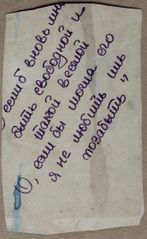 О, если б вновь мне
быть свободной и
такой весной
О, если бы могла его
я не любить иль
позабыть"